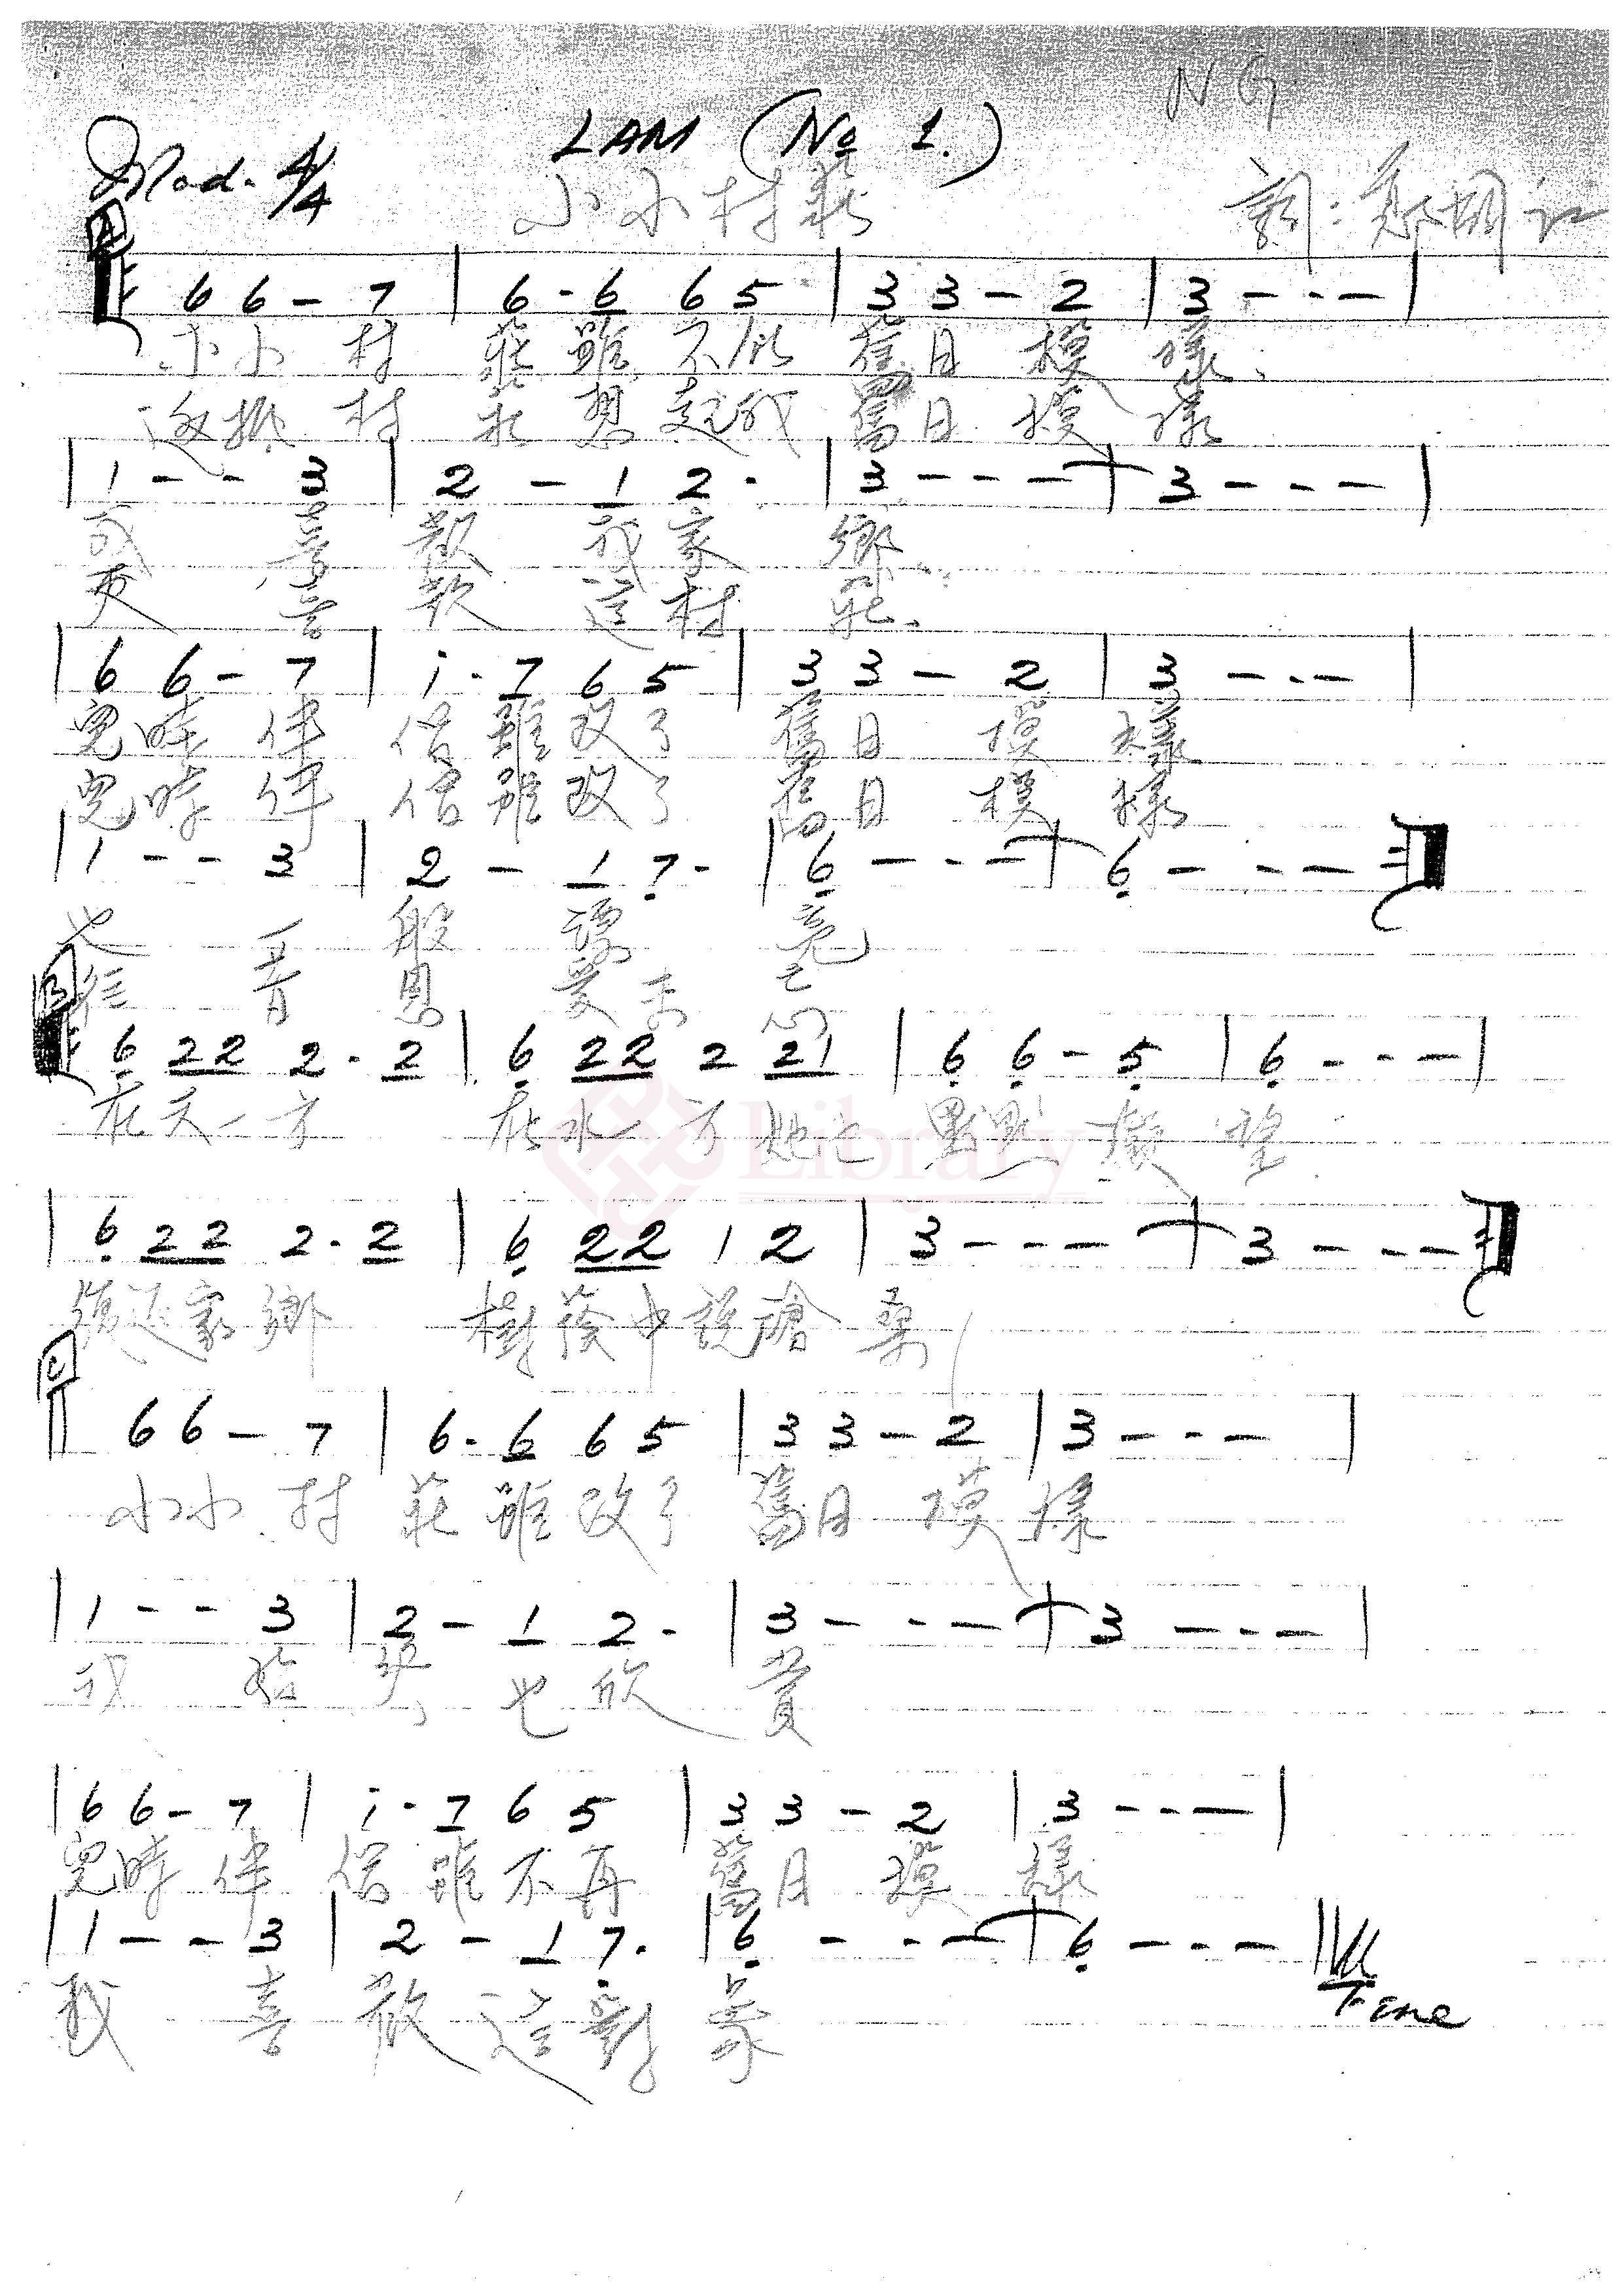 NG
LAM (No 1.)
Mod. 4/4
小小村莊
詞:鄭國江
A
6 6 - 7 | 6 · 6 6 5 | 3 3 - 2 | 3 - - - |
小小村莊雖不似舊日模樣
村莊想起我舊日模樣
| 1 - - 3 | 2 - 1 2 · | 3 - - - | 3 - - - |
我喜歡我家鄉
更喜歡這村莊
| 6 6 - 7 | i · 7 6 5 | 3 3 - 2 | 3 - - - |
兒時伴侶雖改了舊日模樣
兒時伴侶雖改了舊日模樣
| 1 - - 3 | 2 - 1 7 · | 6 - - - | 6 - - -
也一般漂亮
昔日愛未忘
B
6 2 2 2 · 2 | 6 2 2 2 2 1 | 6 6 - 5 | 6 - - - |
在天一方 在水一方 她已默默凝望
| 6 2 2 2 · 2 | 6 2 2 1 2 | 3 - - - | 3 - - -
返家鄉 樹蔭中說滄桑
C
6 6 - 7 | 6 · 6 6 5 | 3 3 - 2 | 3 - - - |
小小村莊雖改了舊日模樣
| 1 - - 3 | 2 - 1 2 · | 3 - - - | 3 - - - |
我始終也欣賞
| 6 6 - 7 | i · 7 6 5 | 3 3 - 2 | 3 - - - |
兒時伴侶雖不再舊日模樣
| 1 - - 3 | 2 - 1 7 · | 6 - - - | 6 - - - |
我喜歡這對象
Fine
Library